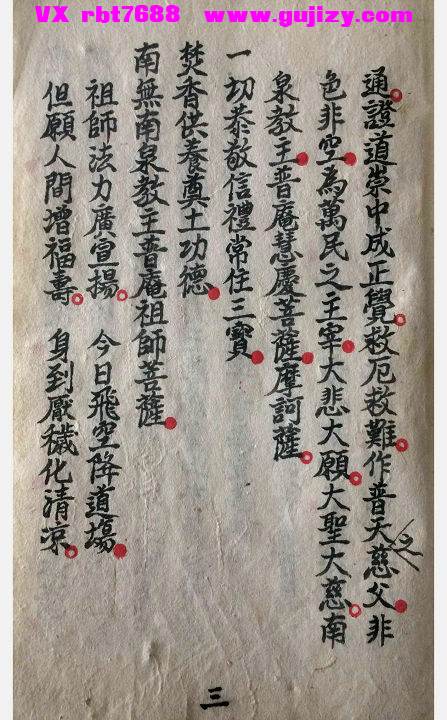 VX rbt7688 www.gujizy.com
通證道崇中成正覺救厄救難作普天慈父非
之
色非空為萬民之主宰大悲大願大聖大慈南
泉教主普庵慧慶菩薩摩訶薩
一切恭敬信禮常住三寶
焚香供養奠土功德
南無南泉教主普庵祖師菩薩
祖師法力廣宣揚 今日飛空降道塲
但願人間增福壽 身到厭穢化清凉
三